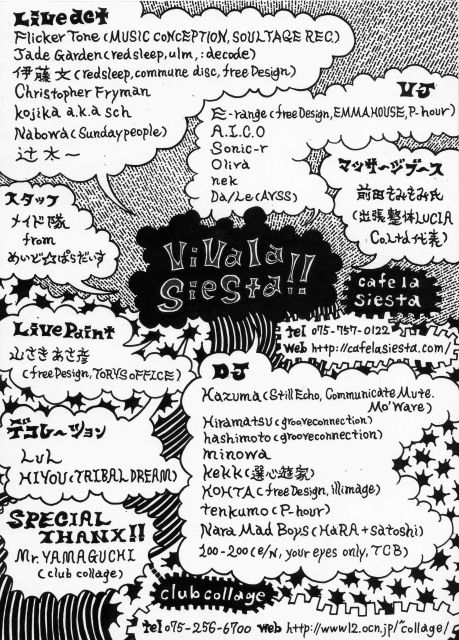 Live act
Flicker Tone (MUSIC CONCEPTION, SOULTAGE REC.)
Jade Garden (redsleep, ulm, :decode)
伊藤文 (redsleep, commune disc, free Design)
Christopher Fryman
kojika a.k.a sch
Nabowa (Sunday people)
辻本一
VJ
E-range (free Design, EMMAHOUSE, P-hour)
A.I.C.O
Sonic-r
Olira
nek
Da/Le (AVSS)
マッサージブース
前田そみそみ氏
(出張整体LUCIA
Co.Ltd代表)
スタッフ
メイド隊
from
めいど☆ぱらだいす
ViVa la
Siesta!!
cafe la
siesta
tel 075-757-0122
web http://cafelasiesta.com/
Live Paint
山さきあさ彦
(free Design, TORYS OFFICE)
DJ
Kazuma (Still Echo, Communicate Mute.
Mo'Ware)
Hiramatsu (grooveconnection)
hashimoto (grooveconnection)
minowa
kekk (選心遊家)
KOHTA (free Design, illimage)
tenkumo (P-hour)
Nara Mad Boys (HaRA + satoshi)
200-200 (e/n, your eyes only, TCB)
デコレーション
LuL
HIYOU (TRIBAL DREAM)
SPECIAL
THANX!!
Mr. YAMAGUCHI
(club collage)
club collage
tel 075-256-6700 web http://www12.ocn.jp/~collage/